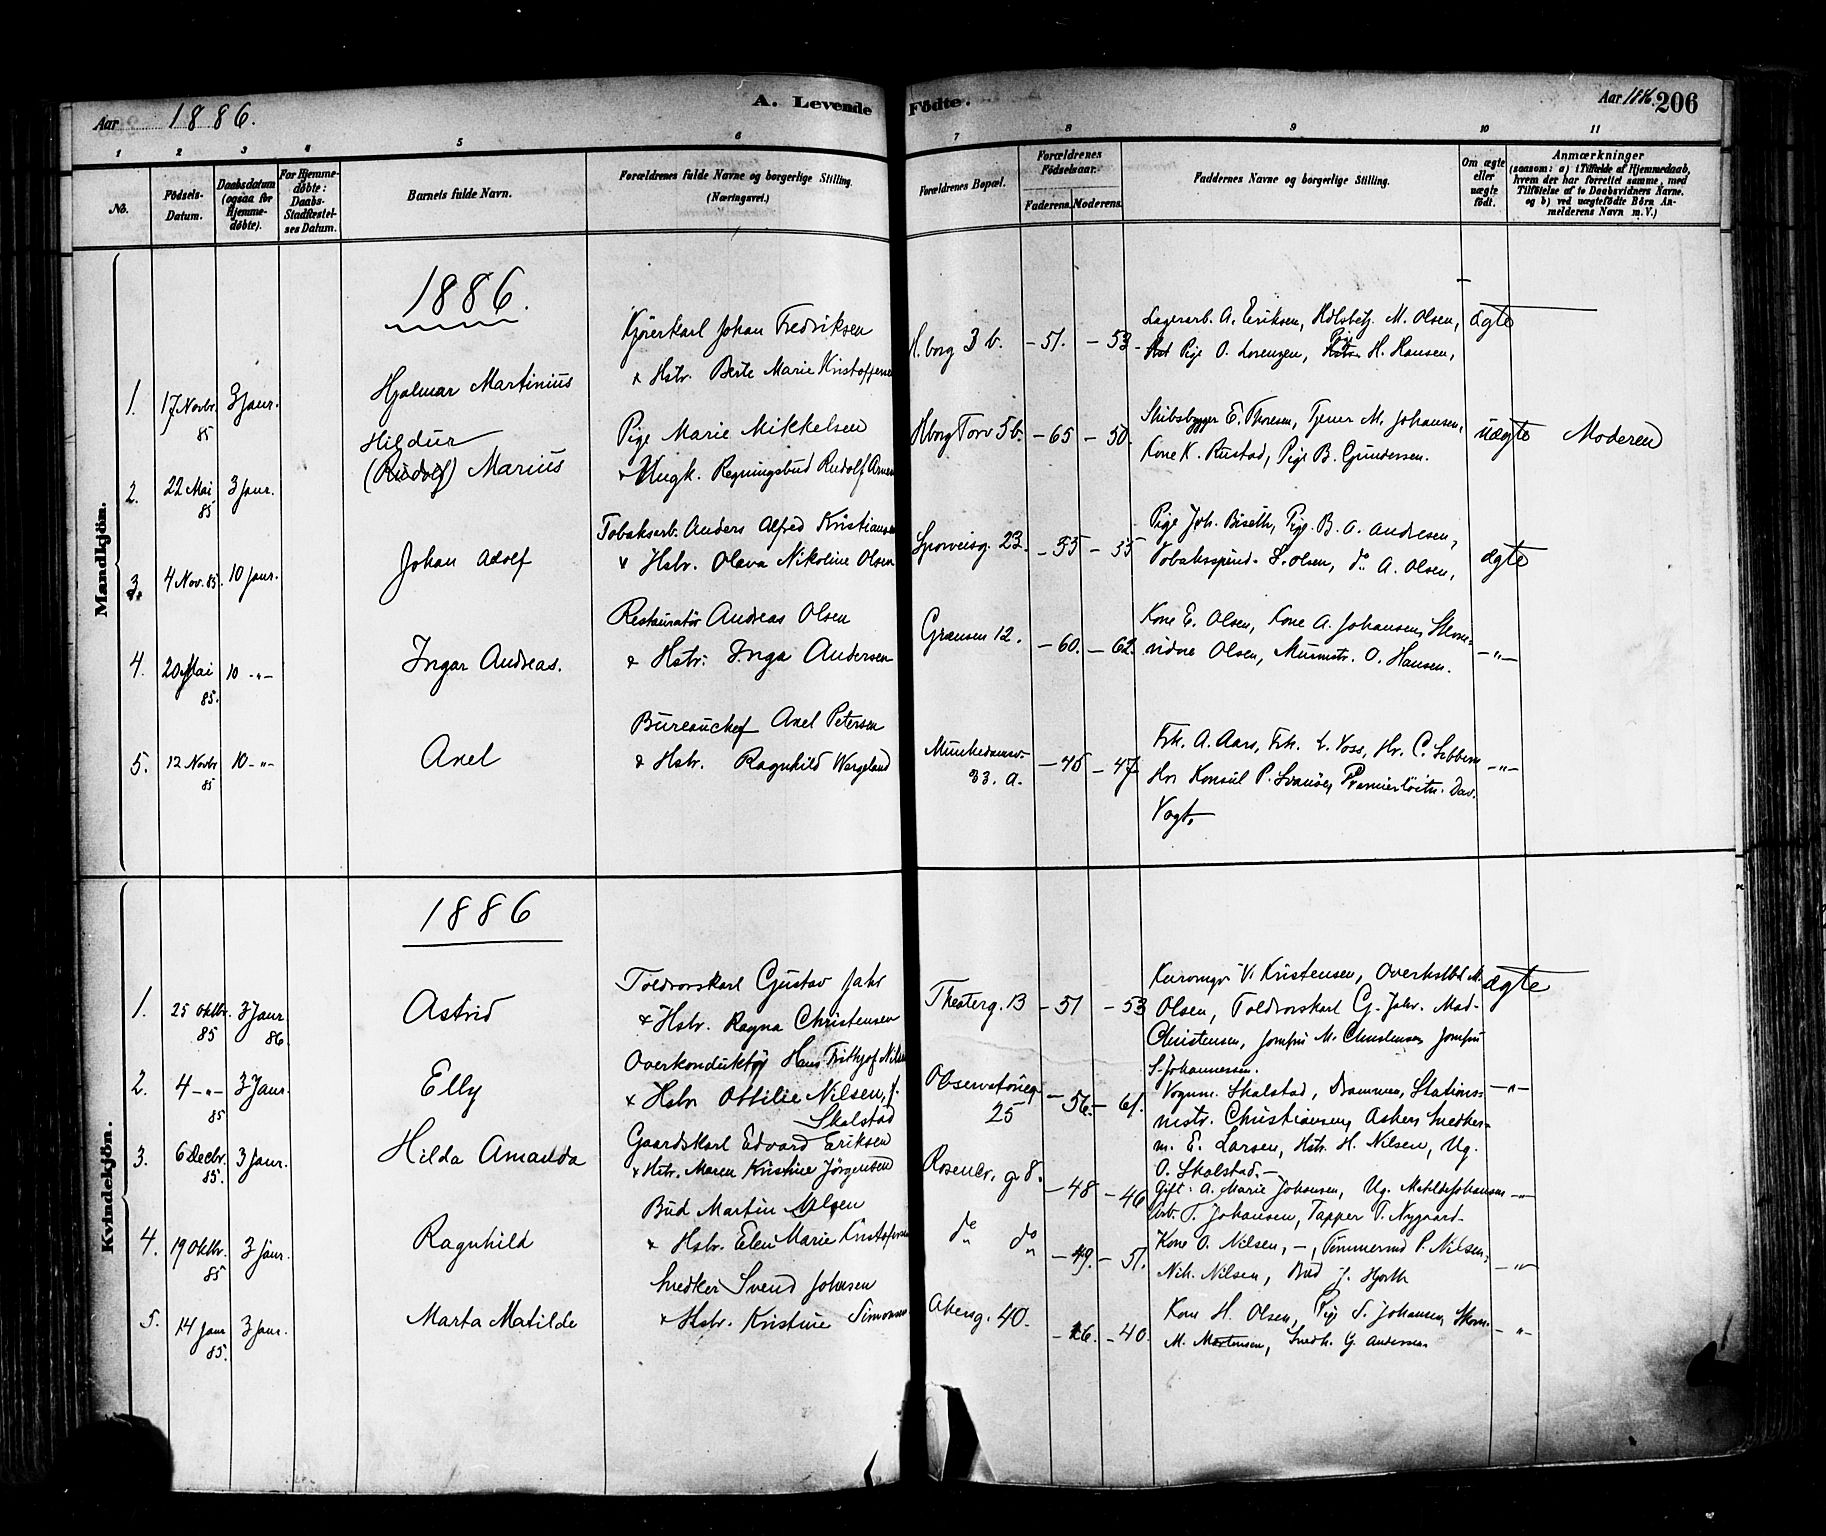 Aar 1886.
A. Levende Födte.
Aar 1886. 206
1 2 3 4 5 6 7 8 9 10 11
No.
Födsels-Datum.
Daabsdatum (ogsaa for Hjemmedøbte).
For Hjemmedøbte: Daabs-Stadfæstelses Datum.
Barnets fulde Navn.
Forældrenes fulde Navne og borgerlige Stilling. (Næringsvei.)
Forældrenes Bopæl.
Forældrenes Födselsaar.
Faderens. Moderens.
Faddernes Navne og borgerlige Stilling.
Om ægte eller uægte födt.
Anmærkninger
(saasom: a) i Tilfælde af Hjemmedaab,
hvem der har forrettet samme, med
Tilföielse af to Daabsvidners Navne.
og b) ved uægtefödte Börn An-
melderens Navn m. V.)
Mandkjön.
1886.
Kjörerkarl Johan Fredriksen
H.borg 3 b. - 51. - 53.
Lagerarb. A. Eriksen, M. Olsen,
ægte
1. 17 Novbr. 85 3 Janr. Hjalmar Martinius
& Hstr. Berte Marie Kristoffersen
Pige O. Lorenzen, Pige H. Hansen,
Hildur
Pige Marie Mikkelsen
Hborg Torv 5 b. - 65 - 50.
Skibsbygger E. Thoresen, Tjener M. Johansen,
uægte Moderen
2. 22 Mai 85 3 Janr. (Rudolf) Marius
& Ungk. Regningsbud Rudolf
Kone K. Rustad, Pige B. Gundersen.
Tobaksarb. Anders Alfred Kristiansen
Sporveisg. 23. - 55 - 55
Pige Joh. Biseth, Pige B. O. Andresen,
ægte
3. 4 Nov. 85. 10 Janr. Johan Adolf
& Hstr. Olava Nikoline Olsen
Tobaksspind. S. Olsen, do. A. Olsen,
Restauratör Andreas Olsen
Grænsen 12. - 60. - 62.
Kone E. Olsen, Kone A. Johansen,
4. 20 Mai 85. 10 -"- Ingar Andreas.
& Hstr. Inga Andersen
Olsen, Murmstr. O. Hansen. -"-
Bureauchef Axel Petersen
Munkedamsv. 33. A. - 46 - 47
Frk. A. Aars, Frk. L. Voss, Hr. C.
5. 12 Novbr 85 10 -"- Axel
& Hstr. Ragnhild Wergeland
Hr. Konsul P. Svanöe, Premierlöitn. Dav. -"-
Vogt.
Kvindekjön.
1886
Toldvorskarl Gustav Jahr
Theaterg. 13 - 51 - 53
V. Kristensen, M.
ægte
1. 25 Oktbr. 85 3 Janr 86. Astrid
& Hstr. Ragna Christensen
Olsen, Toldvorskarl G. Jahr. Mad.
Christensen, Jomfru M. Christensen, Jomfru
S. Johannessen.
Overkonduktör Hans Frithjof Nilsen
Observatorieg. 25 - 56. - 61.
2. 4 -"- 85 3 Janr. Elly
& Hstr. Ottilie Nilsen, f. Skalstad
Vognm. Skalstad, Drammen, Stations- -"-
mstr. Christiansen, Asker, Snedker-
m. E. Larsen, Hstr. H. Nilsen, Ug.
O. Skalstad. -
Gaardskarl Edvard Eriksen
Rosenkr. g. 8. - 48 - 46
3. 6 Decbr. 85. 3 Janr. Hilda Amanda
& Hstr. Maren Kristine Jörgensen
Gift: A. Marie Johansen, Ug. Matilde Johansen -"-
Arb. T. Johansen, Tapper T. Nygaard.
Bud Martin Nilsen
do do - 49. - 51.
4. 19 Oktbr. 85 3 Janr. Ragnhild
& Hstr. Elen Marie Kristofersen
Kone O. Nilsen, -, Tömmermd P. Nilsen,
Nik. Nilsen, Bud J. Hjorth -"-
Snedker Svend Johnsen
Akersg. 40. - 46. - 40.
5. 14 Janr 85. 3 Janr. Marta Matilde
& Hstr. Kristine Simonsen
Kone H. Olsen, Pige S. Johansen, Skom. -"-
M. Mortensen, Snedk. G. Andersen.